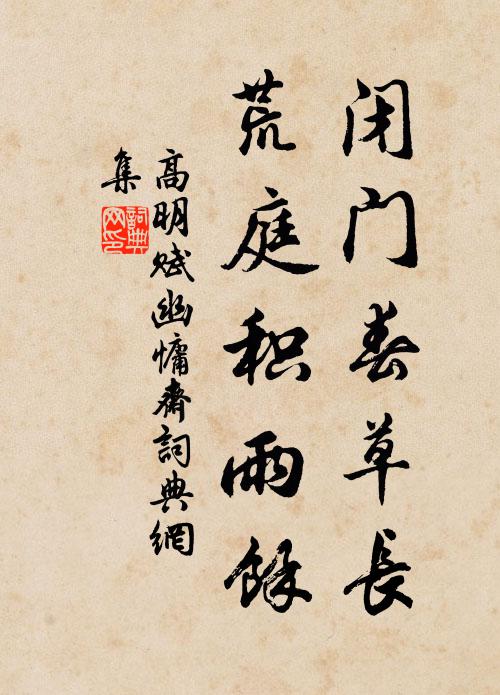 闭门春草长
荒庭积雨馀
高明赋幽慵斋词典網
集
詞典
网印